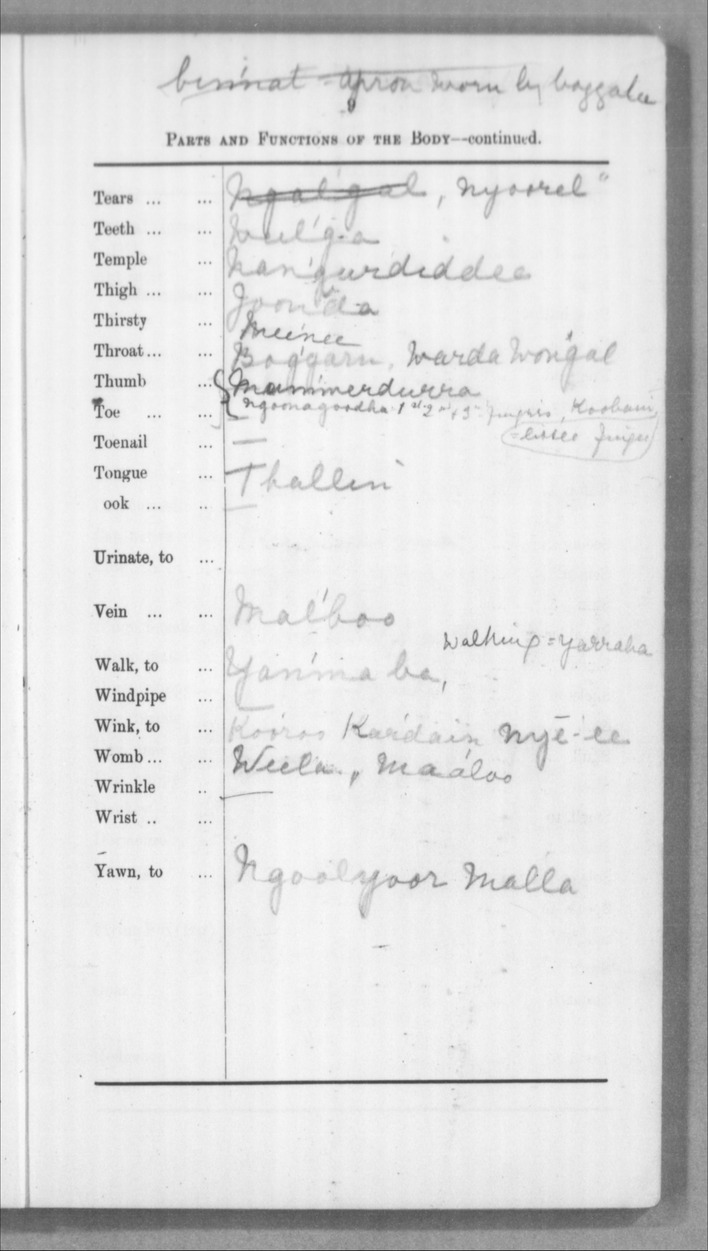 bin'nat - apron worn by boggalee
9
PARTS AND FUNCTIONS OF THE BODY—continued.
Tears ... ... Ngal'gal, nyoorel"
Teeth ... ... Wul'ga
Temple ... Nan'gurdiddee
Thigh ... ... Joon'da
Thirsty ... Mee'nee
Throat... ... Bog'garn, Warda Won'gal
Thumb ... Mum'merdurra
Toe ... ... ngoonagoodha 1st 2nd + 3rd fingers, Koobain
= little finger
Toenail ... —
Tongue ... Thallin'
ook ... .. —
Urinate, to ...
Vein ... ... Mal'boo
walking = yarraha
Walk, to ... Yan'ma ba,
Windpipe ... —
Wink, to ... Koo'roo Kar'dain nye-ee
Womb ... ... Weela, maáloo
Wrinkle .. —
Wrist .. ...
Yawn, to ... Ngoolyoor malla